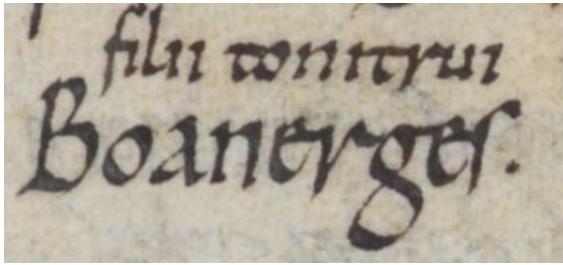 filii tonitrui
Boanerges.